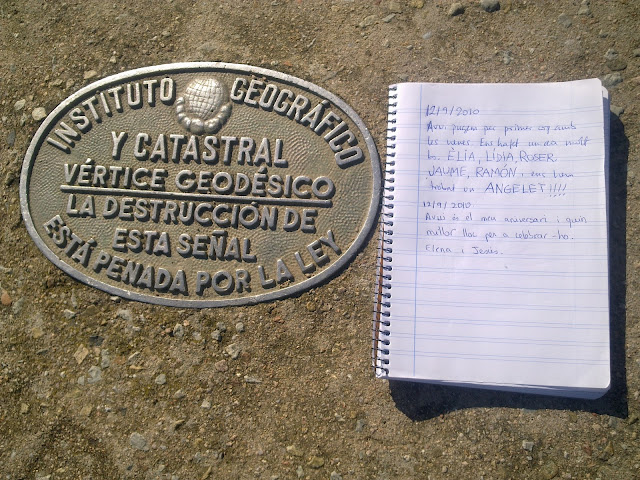 INSTITUTO GEOGRÁFICO
Y CATASTRAL
VÉRTICE GEODÉSICO
LA DESTRUCCIÓN DE
ESTA SEÑAL
ESTÁ PENADA POR LA LEY
12/9/2010
Avui pugem per primer cop amb
les nanes. Ens ha fet un dia molt
bo. ELIA, LIDIA, ROSER,
JAUME, RAMÓN, i ens hem
trobat un ANGELET!!!!
12/9/2010
Avui és el meu aniversari i quin
millor lloc per a celebrar-ho.
Elena i Jesús.